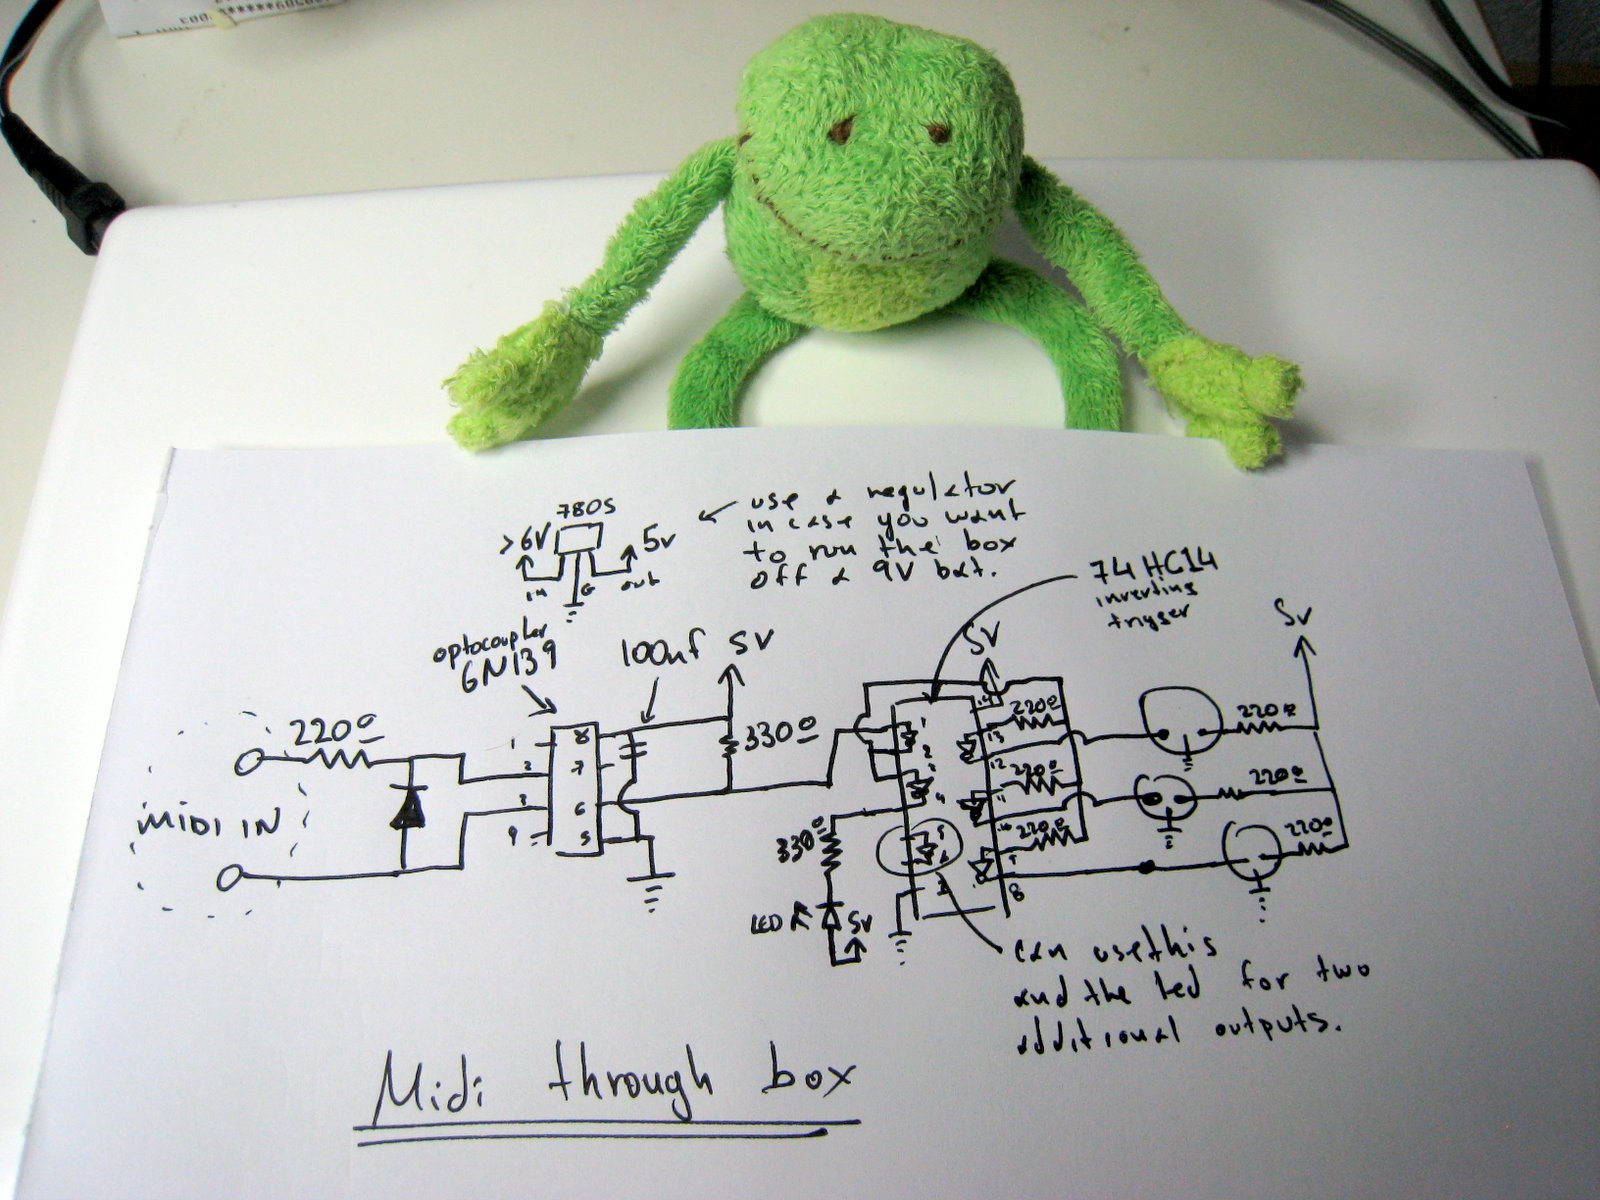 7805
>6V
5v
in
G
out
use a regulator
in case you want
to run the box
off a 9V bat.
74HC14
inverting
trigger
optocoupler
6N139
100nf
5V
5V
5v
220Ω
MIDI IN
1
2
3
4
8
7
6
5
330Ω
1
2
3
4
5
6
7
14
13
12
11
10
9
8
220Ω
220Ω
220Ω
220Ω
220Ω
220Ω
330Ω
LED
5v
can use this
and the led for two
additional outputs.
Midi through box